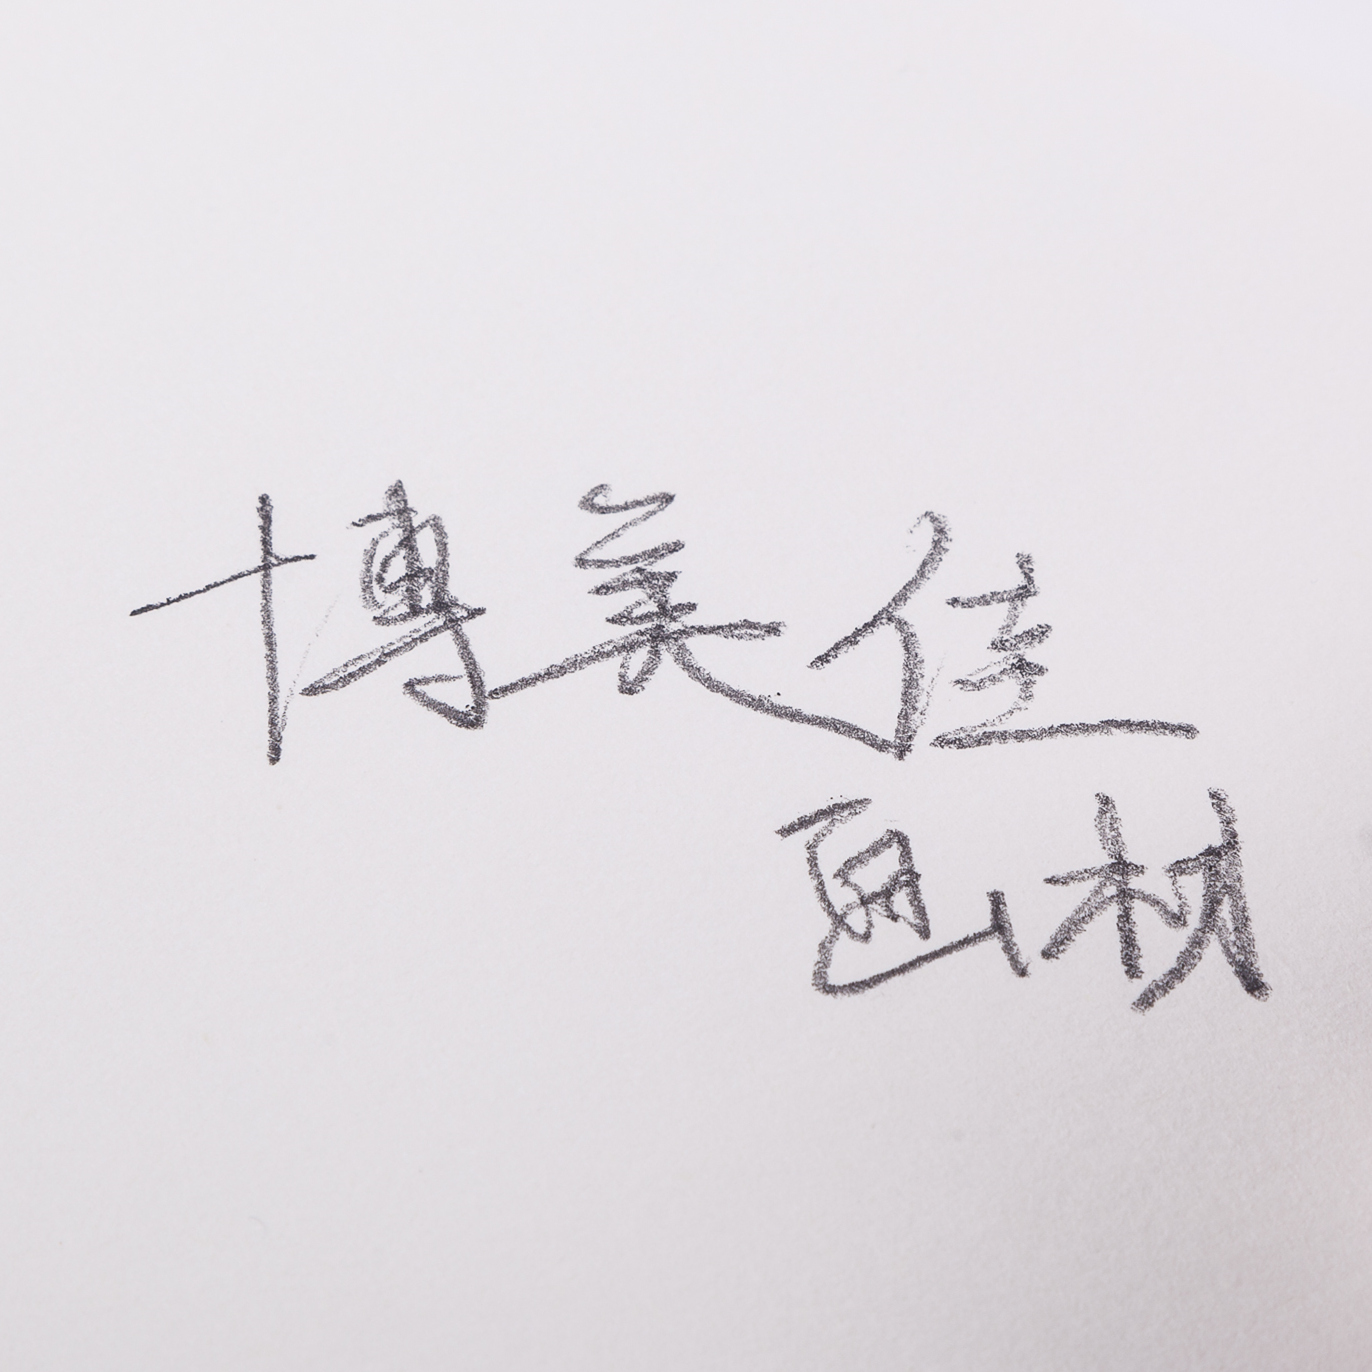 博美佳
画材